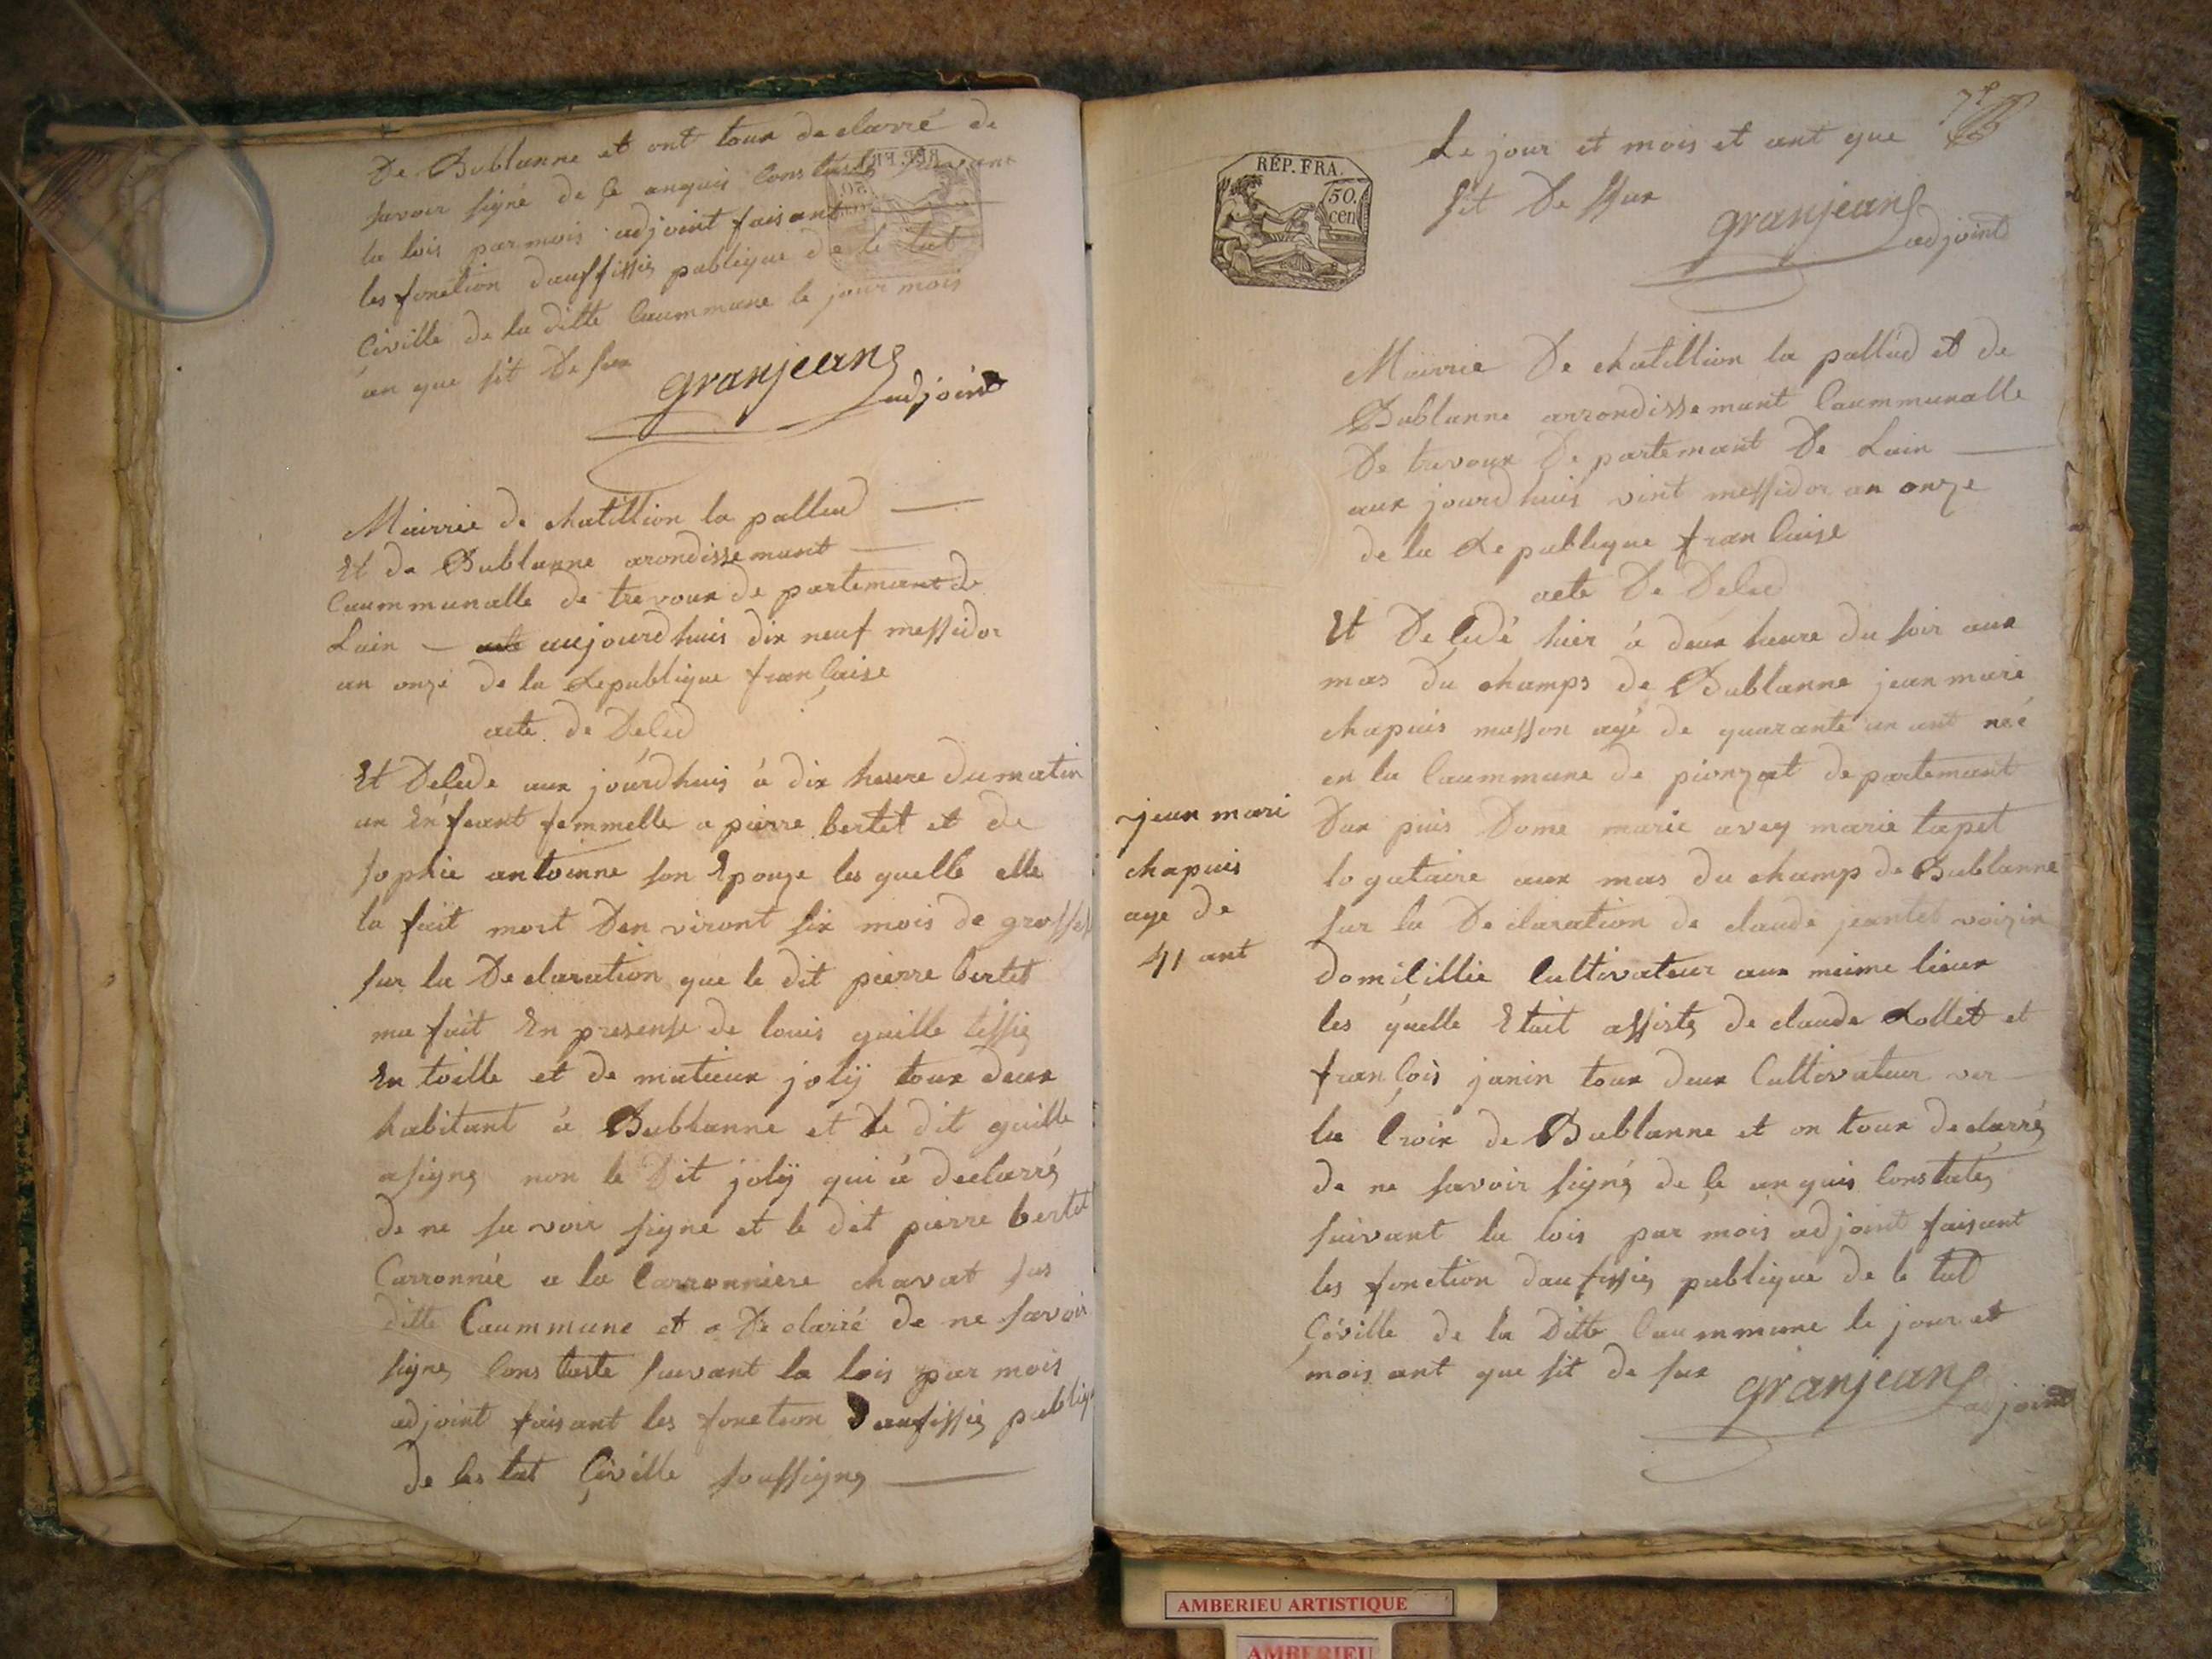 De Bublanne et ont toux declarré de
savoir signé de ce anquis Constaté suivant
la lois par mois adjoint faisant
les fonction dauffissiez publique de le tat
Civille de la ditte Caummune le jour mois
an que sit De sux
granjean
adjoint
Mairrie de chatillion la pallud
Et de Bublanne arondissemant
Caummunalle de trevoux de partemant de
Lain aujourdhuis dix neuf messidor
an onze de la Republique francaise
acte de Deled
Et Delede aux jourdhuis à dix heure du matin
un Enfeant femmelle a pierre bertet et de
sophie antoinne son Epouze les quelle elle
la fait mort Den viront six mois de grossesse
sur la Declaration que le dit pierre bertet
ma fait En presense de louis guille tissiez
En toille et de matieux jolÿ toux deux
habitant à Bublanne et le dit guille
a signez non le Dit jolÿ qui à declarréz
de ne sa voir signe et le dit pierre bertet
Carronnée a la Carronniere chavat sus
ditte Caummune et a De clarré de ne savoir
signez Cons taste suivant la lois par mois
adjoint faisant les fonction Daufissiez publiq
de les tat Civille soussignez
71
Le jour et mois et ant que
sit De ssux
granjean
adjoint
RÉP. FRA.
50.
cen
Mairrie De chatillion la pallud et de
Bublanne arrondissemant Caummunalle
De trevoux De partemant De Lain
aux jourdhuis vint messidor an onze
de la Republique francaise
acte De Deled
Et De ledé hier à deux heure du soir aux
mas du champs de Bublanne jean mari
chapuis masson agé de quarante un ant néé
en la Caummune de pionzat departemant
Dux puis Dome marié avey marie tapet
logataire aux mas du champ de Bublanne
sur la De claration de claude jeantet voizin
domicillie Cultivateur aux meime lieux
les quelle Etait assistez de claude Lollet et
francois janin toux deux Cultivateur ver
la Croix de Bublanne et on toux declarréz
de ne savoir signéz de ce anquis Constatéz
suivant la lois par mois adjoint faisant
les fonction daufissiez publique de le tat
Civille de la Ditte Caummune le jour et
mois ant que sit de sux
granjean
adjoint
jean mari
chapuis
age de
41 ant
AMBERIEU ARTISTIQUE
AMBERIEU